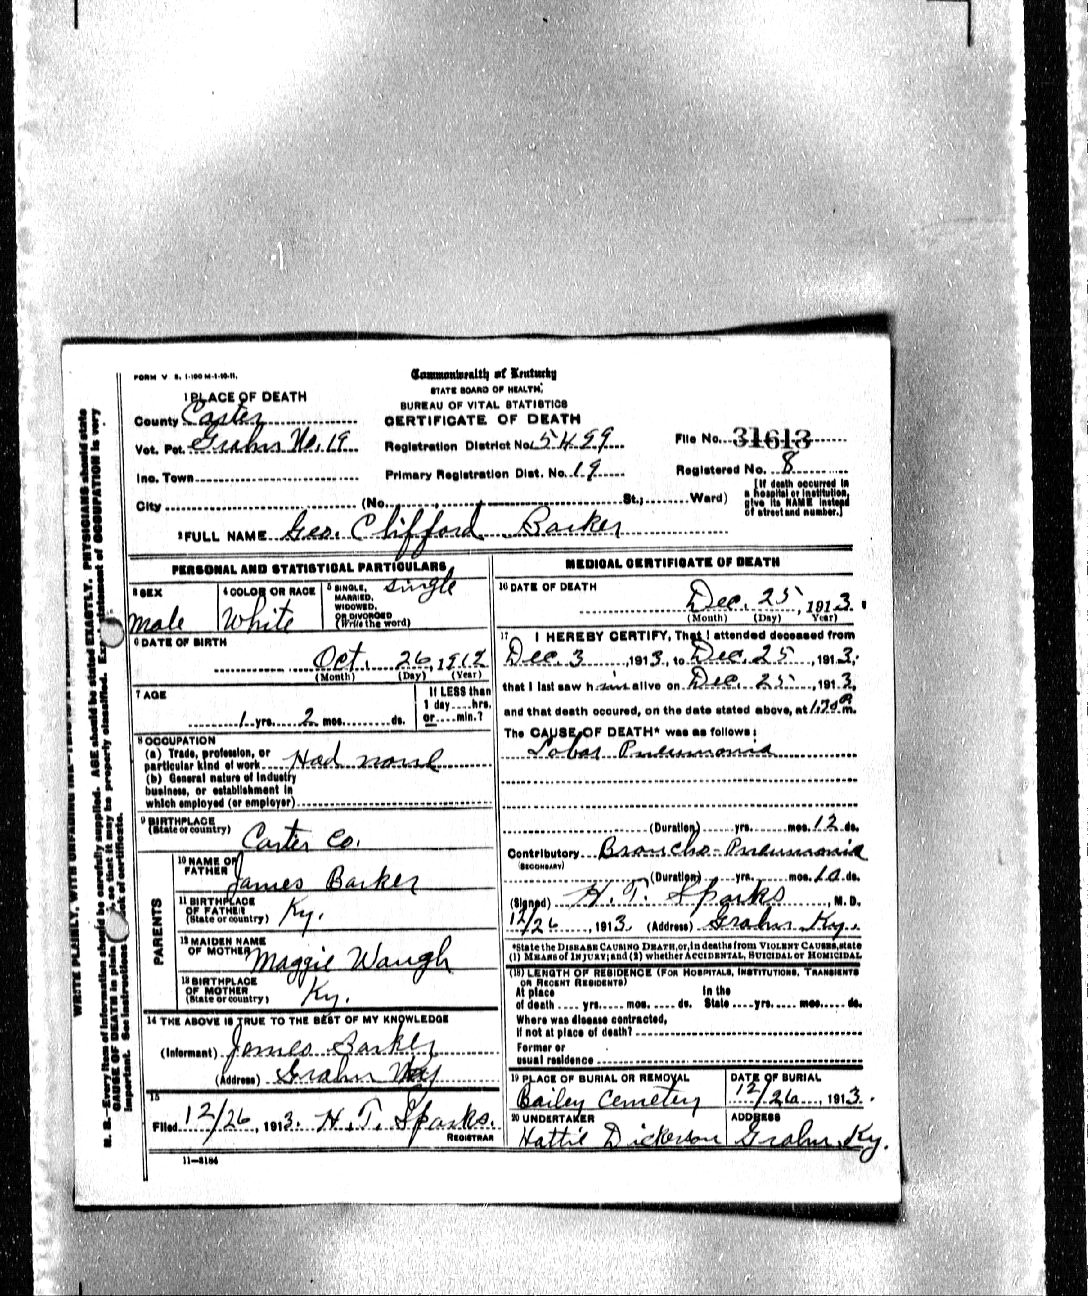 FORM V S. 1-100 M-1-10-11.
Commonwealth of Kentucky
STATE BOARD OF HEALTH,
BUREAU OF VITAL STATISTICS
CERTIFICATE OF DEATH
1 PLACE OF DEATH
County Carter
Vot. Pct. Grahn No. 19
Registration District No. 5499
File No. 31613
Inc. Town
Primary Registration Dist. No. 19
Registered No. 8
City (No. St.; Ward)
[If death occurred in
a hospital or institution,
give its NAME instead
of street and number.]
2 FULL NAME Geo. Clifford Barker
PERSONAL AND STATISTICAL PARTICULARS
3 SEX
male
4 COLOR OR RACE
White
5 SINGLE,
MARRIED,
WIDOWED,
OR DIVORCED
(Write the word)
single
6 DATE OF BIRTH
Oct. 26, 1912
(Month) (Day) (Year)
7 AGE
1 yrs. 2 mos. ds.
If LESS than
1 day....hrs.
or....min.?
8 OCCUPATION
(a) Trade, profession, or
particular kind of work Had none
(b) General nature of industry
business, or establishment in
which employed (or employer)
9 BIRTHPLACE
(State or country)
Carter Co.
PARENTS
10 NAME OF
FATHER
James Barker
11 BIRTHPLACE
OF FATHER
(State or country)
Ky.
12 MAIDEN NAME
OF MOTHER
Maggie Waugh
13 BIRTHPLACE
OF MOTHER
(State or country)
Ky.
14 THE ABOVE IS TRUE TO THE BEST OF MY KNOWLEDGE
(Informant) James Barker
(Address) Grahn Ky
15
Filed 12/26, 1913. H. T. Sparks.
REGISTRAR
11—3184
MEDICAL CERTIFICATE OF DEATH
16 DATE OF DEATH
Dec. 25, 1913.
(Month) (Day) Year)
17 I HEREBY CERTIFY, That I attended deceased from
Dec. 3, 1913, to Dec. 25, 1913,
that I last saw him alive on Dec. 25, 1913,
and that death occured, on the date stated above, at m.
The CAUSE OF DEATH* was as follows:
Lobar Pneumonia
(Duration) yrs. mos. 12 ds.
Contributory Broncho-Pneumonia
(SECONDARY)
(Duration) yrs. mos. 10 ds.
(Signed) H. T. Sparks, M. D.
12/26, 1913. (Address) Grahn Ky.
*State the DISEASE CAUSING DEATH, or, in deaths from VIOLENT CAUSES, state
(1) MEANS OF INJURY; and (2) whether ACCIDENTAL, SUICIDAL or HOMICIDAL
(18) LENGTH OF RESIDENCE (FOR HOSPITALS, INSTITUTIONS, TRANSIENTS
OR RECENT RESIDENTS)
At place
of death yrs. mos. ds.
In the
State yrs. mos. ds.
Where was disease contracted,
if not at place of death?
Former or
usual residence
19 PLACE OF BURIAL OR REMOVAL
Bailey Cemetery
DATE OF BURIAL
12/26, 1913.
20 UNDERTAKER
Hattie Dickerson
ADDRESS
Grahn, Ky.
WRITE PLAINLY, WITH UNFADING INK
N. B.—Every item of information should be carefully supplied. AGE should be stated EXACTLY. PHYSICIANS should state
CAUSE OF DEATH in plain so that it may be properly classified. statement of OCCUPATION is very
important. See instructions of certificate.